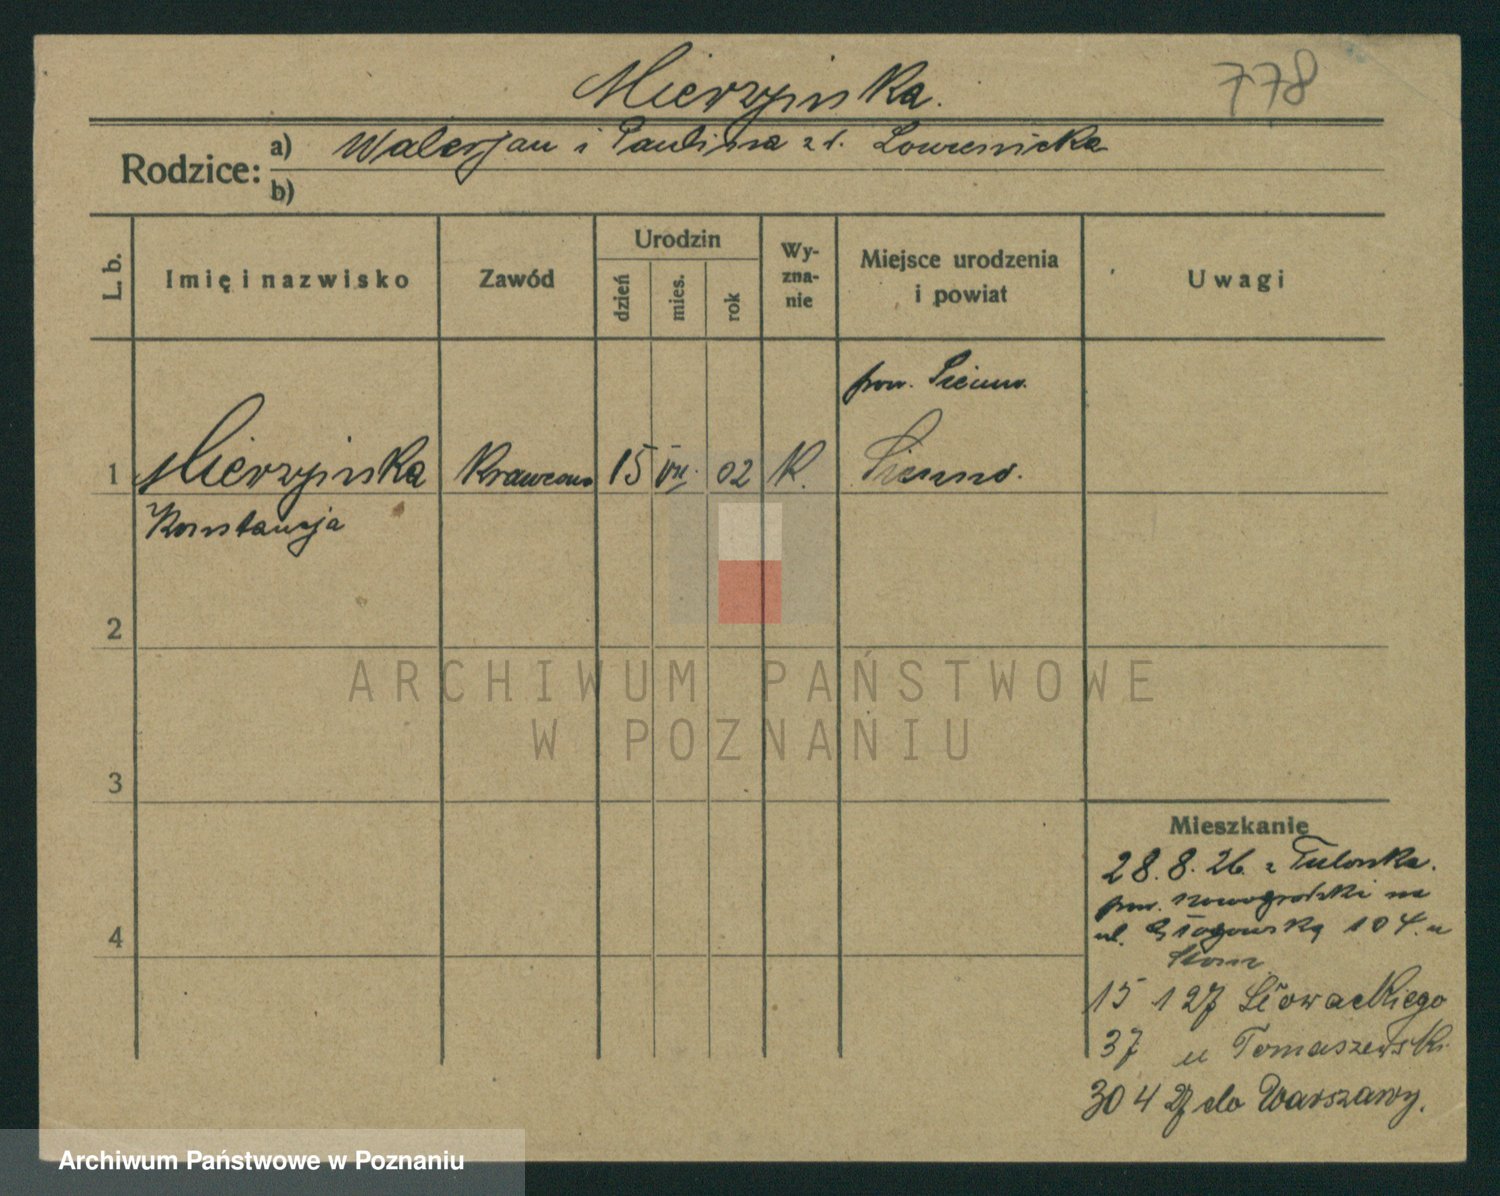 Mierzyńska. 778
Rodzice: a) Walerjan i Paulina z d.
b)
L. b. Imię i nazwisko Zawód Urodzin dzień mies. rok Wy-zna-nie Miejsce urodzenia i powiat Uwagi
pow.
1 Mierzyńska Krawcowa 15 VII. 02 K. Sienno.
Konstancja
2
3
4
Mieszkanie
28. 8. 26. z
pow. nowogrodzki na
ul. Głogowską 104. u
15 1 27 Słowackiego
37 u Tomaszewski
30 4 27 do Warszawy.
ARCHIWUM PAŃSTWOWE
W POZNANIU
Archiwum Państwowe w Poznaniu